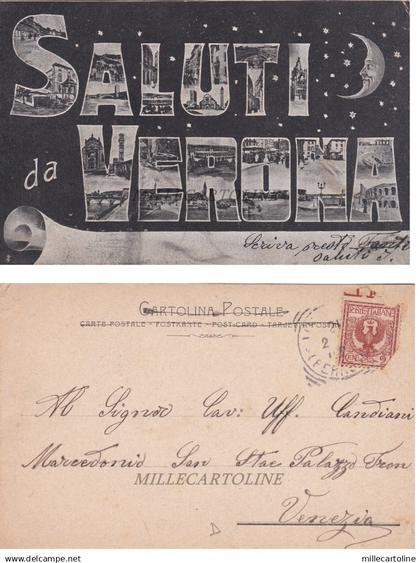 SALUTI
da VERONA
Scriva presto Tante
saluti
CARTOLINA POSTALE
CARTE POSTALE - POSTKARTE - POST-CARD - TARJETA POSTAL
POSTE ITALIANE
2
(FERROVIA
Al Signor Cav: Uff. Candiani
Marcedonio San Stae Palazzo Tron
MILLECARTOLINE
Venezia
Millecartoline
www.delcampe.net